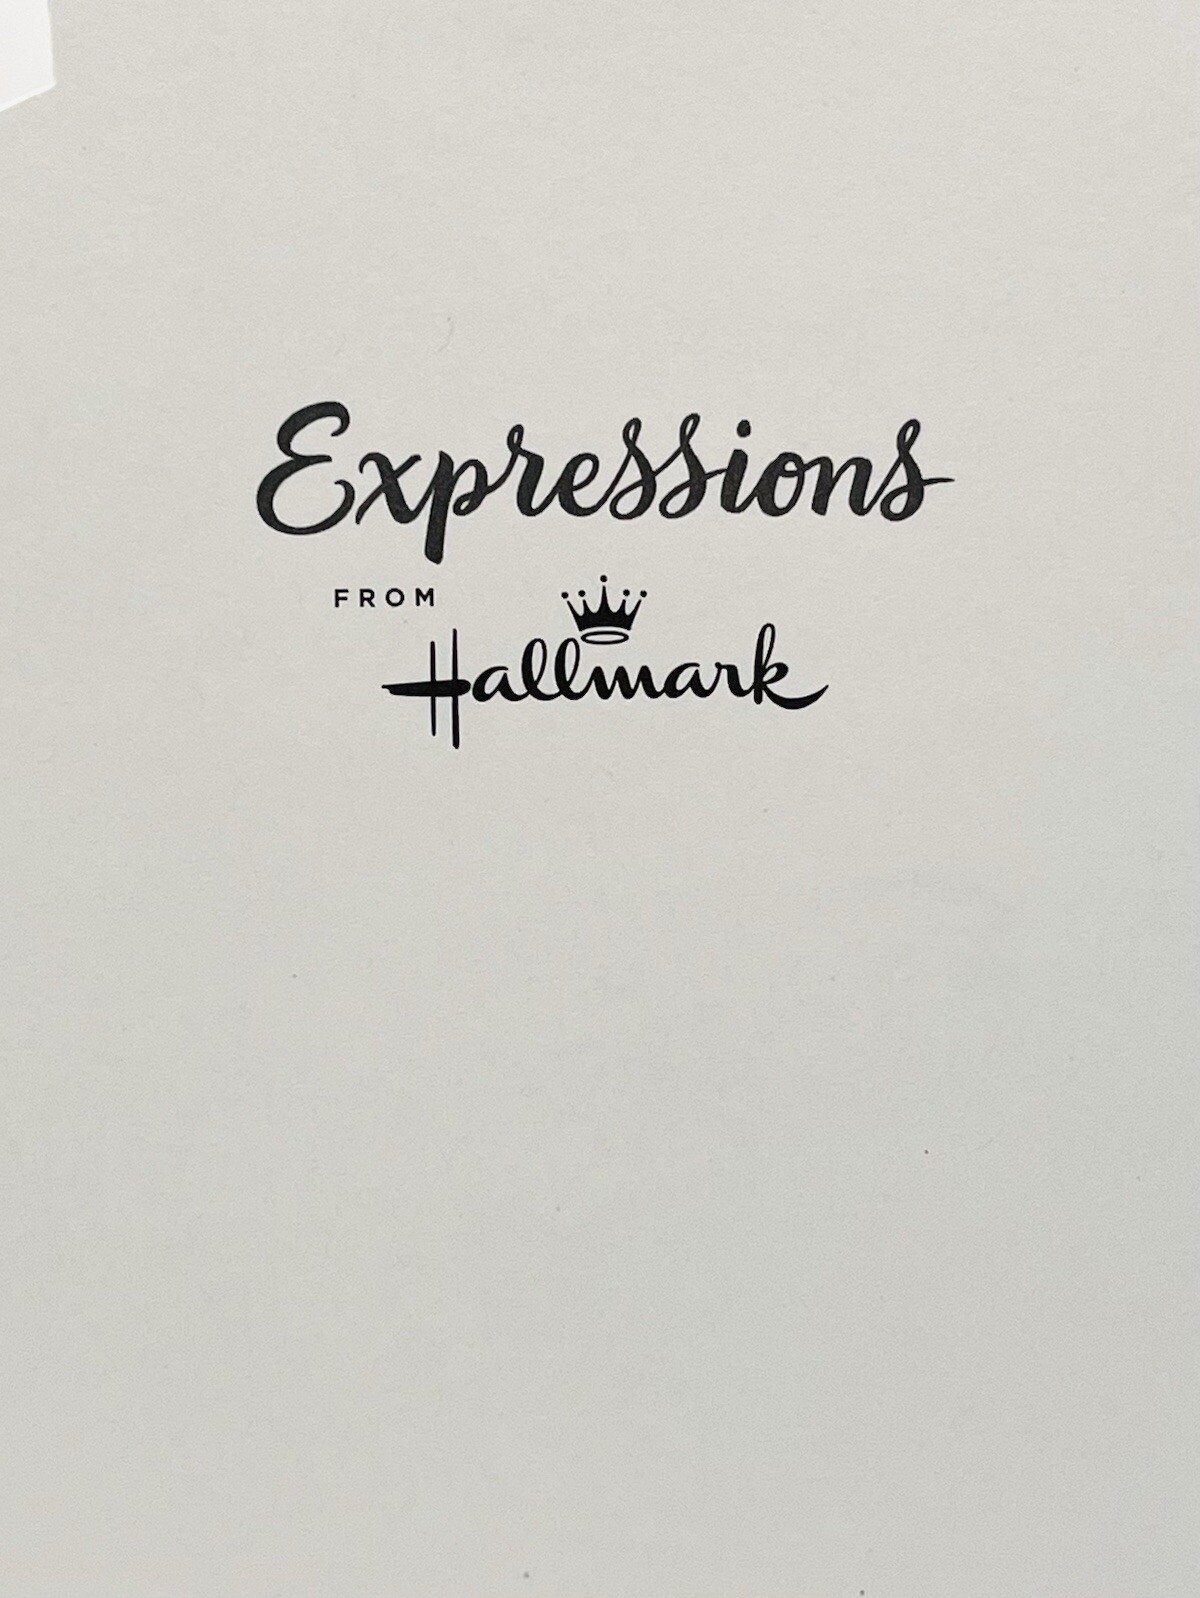 Expressions
FROM
Hallmark